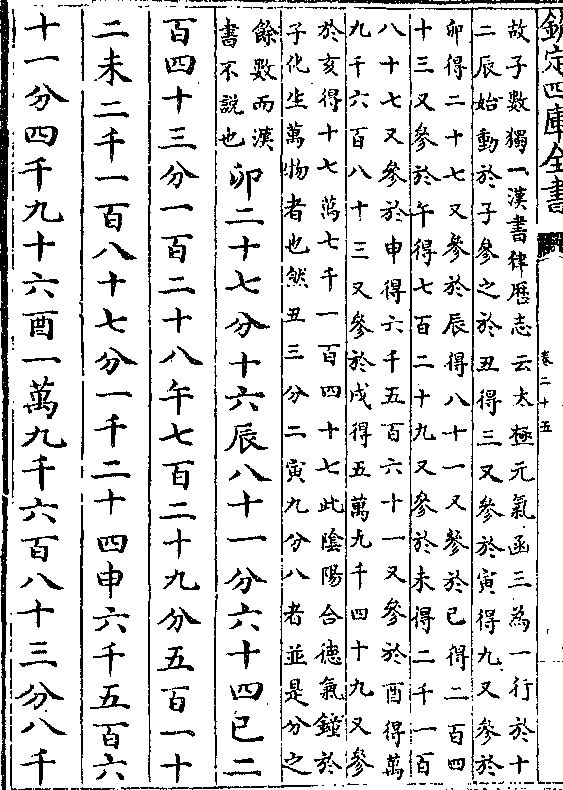 欽定四庫全書
卷二十五
故子數獨一漢書律厯志云太極元氣函三為一行於十
二辰始動於子參之於丑得三又參於寅得九又參於
卯得二十七又參於辰得八十一又參於巳得二百四
十三又參於午得七百二十九又參於未得二千一百
八十七又參於申得六千五百六十一又參於酉得萬
九千六百八十三又參於戌得五萬九千四十九又參
於亥得十七萬七千一百四十七此陰陽合德氣鐘於
子化生萬物者也然丑三分二寅九分八者並是分之
餘數而漢
書不說也
卯二十七分十六辰八十一分六十四巳二
百四十三分一百二十八午七百二十九分五百一十
二未二千一百八十七分一千二十四申六千五百六
十一分四千九十六酉一萬九千六百八十三分八千